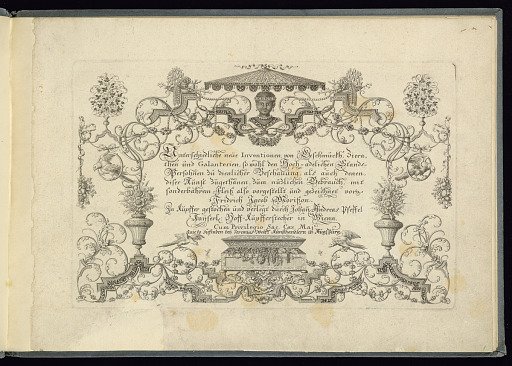 Unterschidliche neue Inventionen von Geschmuckh, Zierra-
then und Galanterien, so wohl den Hoch-adelichen Stands-
Persohnen zu dienlicher Beschauung, als auch denen
diser Kunst zugethanen zum nüzlichen Gebrauch, mit
sonderbahrem Fleiß also vorgestellt und gezeichnet von
Friderich Jacob Morison.
Zu Kupffer gestochen und verlegt durch Johan Andreas Pfeffel
Kayserl. Hoff-Kupfferstecher in Wienn.
Cum Privilegio Sac. Cæs. Maj.
bey Jeremias Wolff Kunsthändlern in Augspurg.